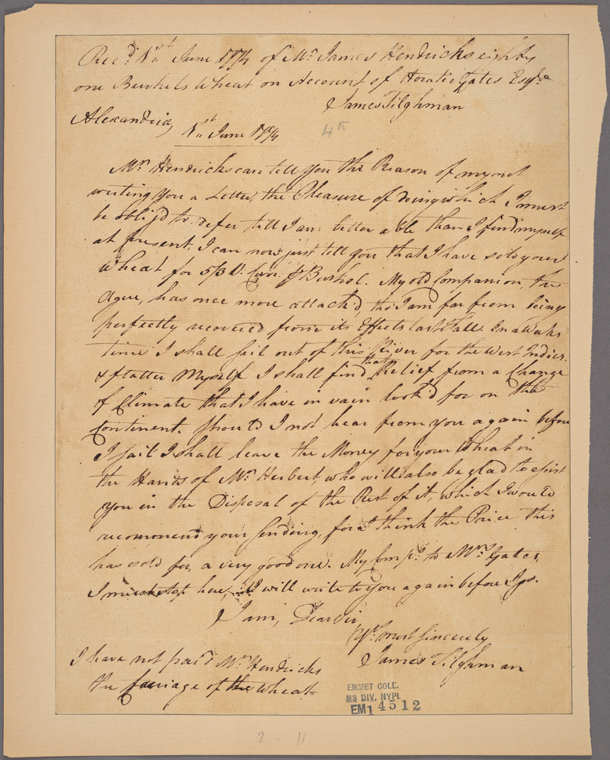 Rec.d No.st June 1774 of Mr. James Hendricks eighty
one Bushels Wheat on Account of Horatio Gates Esqr.
James Tilghman
Alexandria, No.st June 1774
4th
Mr. Hendricks can tell you the Reason of my not
writing you a Letter, the Pleasure of doing which I must
be oblig'd to defer till I am better able than I find myself
at present. I can now just tell you that I have sold your
Wheat for 5/3 V. Curr. P Bushel. My old Companion, the
Ague, has once more attack'd, tho I am far from being
perfectly recovered from its Effects last Fall. In a Weeks
time I shall sail out of this River for the West Indies
& flatter Myself I shall find that Relief from a Change
of Climate that I have in vain look'd for on this
Continent. Should I not hear from you again before
I sail I shall leave the Money for your Wheat in
the Hands of Mr. Herbert, who will also be glad to assist
you in the Disposal of the Rest of it, which I would
recommend your sending, for I think the Price this
has sold for, a very good one. My Comp.ts to Mrs. Gates,
I must stop here, I will write to you again before I go.
I am, Dear Sir,
Yr. most Sincerely
James Tilghman
I have not paid Mr. Hendricks
the Carriage of the Wheat
EMMET COLL.
MS DIV. NYPL
EM1 4512
2 - 11